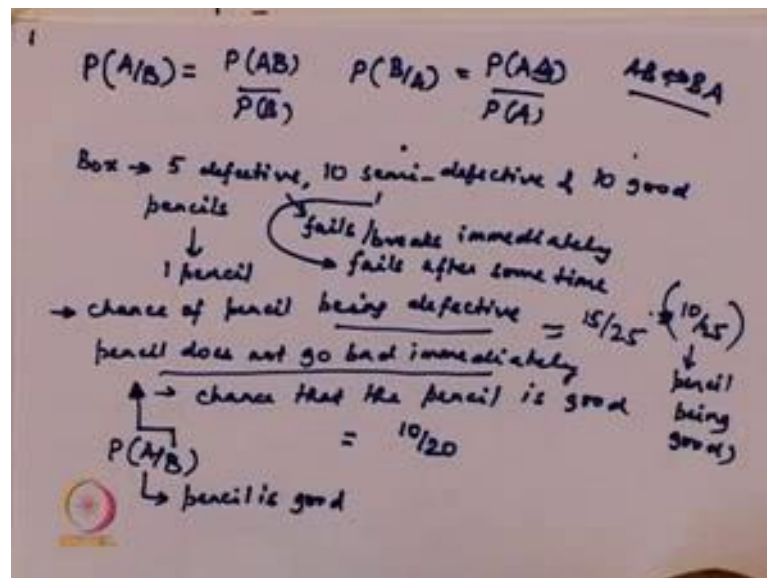 1
P(A/B) = P(AB) / P(B) P(B/A) = P(AB) / P(A) AB ⇔ BA
Box → 5 defective, 10 semi-defective & 10 good
pencils
↓ fails/breaks immediately
1 pencil → fails after some time
→ chance of pencil being defective = 15/25 (10/25)
pencil does not go bad immediately ↓ pencil being good)
→ chance that the pencil is good
= 10/20
P(A/B)
↳ pencil is good